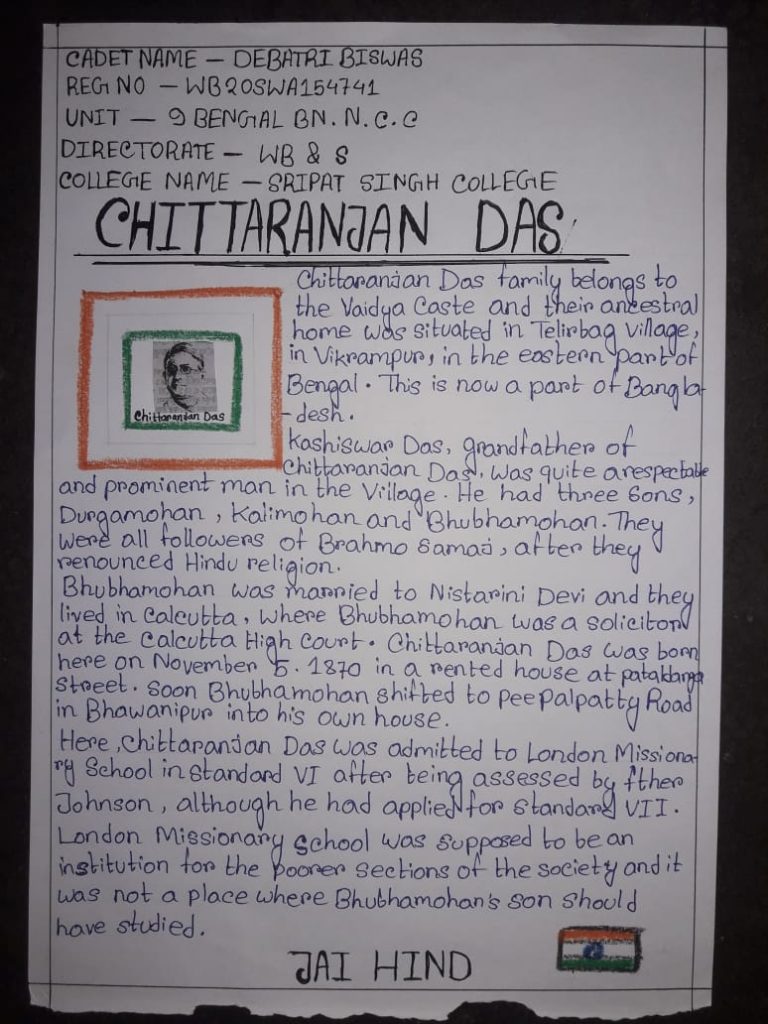 CADET NAME – DEBATRI BISWAS
REG NO – WB20SWA154741
UNIT – 9 BENGAL BN. N.C.C
DIRECTORATE – WB & S
COLLEGE NAME – SRIPAT SINGH COLLEGE
CHITTARANJAN DAS
Chittaranjan Das family belongs to
the Vaidya Caste and their ancestral
home was situated in Telirbag Village,
in Vikrampur, in the eastern part of
Bengal. This is now a part of Bangla-
-desh.
Chittaranjan Das
Kashiswar Das, grandfather of
Chittaranjan Das, was quite a respectable
and prominent man in the Village. He had three Sons,
Durgamohan, Kalimohan and Bhubhamohan. They
were all followers of Brahmo Samaj, after they
renounced Hindu religion.
Bhubhamohan was married to Nistarini Devi and they
lived in Calcutta, where Bhubhamohan was a solicitor
at the Calcutta High Court. Chittaranjan Das was born
here on November 5. 1870 in a rented house at pataldanga
Street. Soon Bhubhamohan shifted to peepalpatty Road
in Bhawanipur into his own house.
Here, Chittaranjan Das was admitted to London Missiona-
ry School in Standard VI after being assessed by fther
Johnson, although he had applied for Standard VII.
London Missionary School was supposed to be an
institution for the poorer sections of the society and it
was not a place where Bhubhamohan's son should
have studied.
JAI HIND